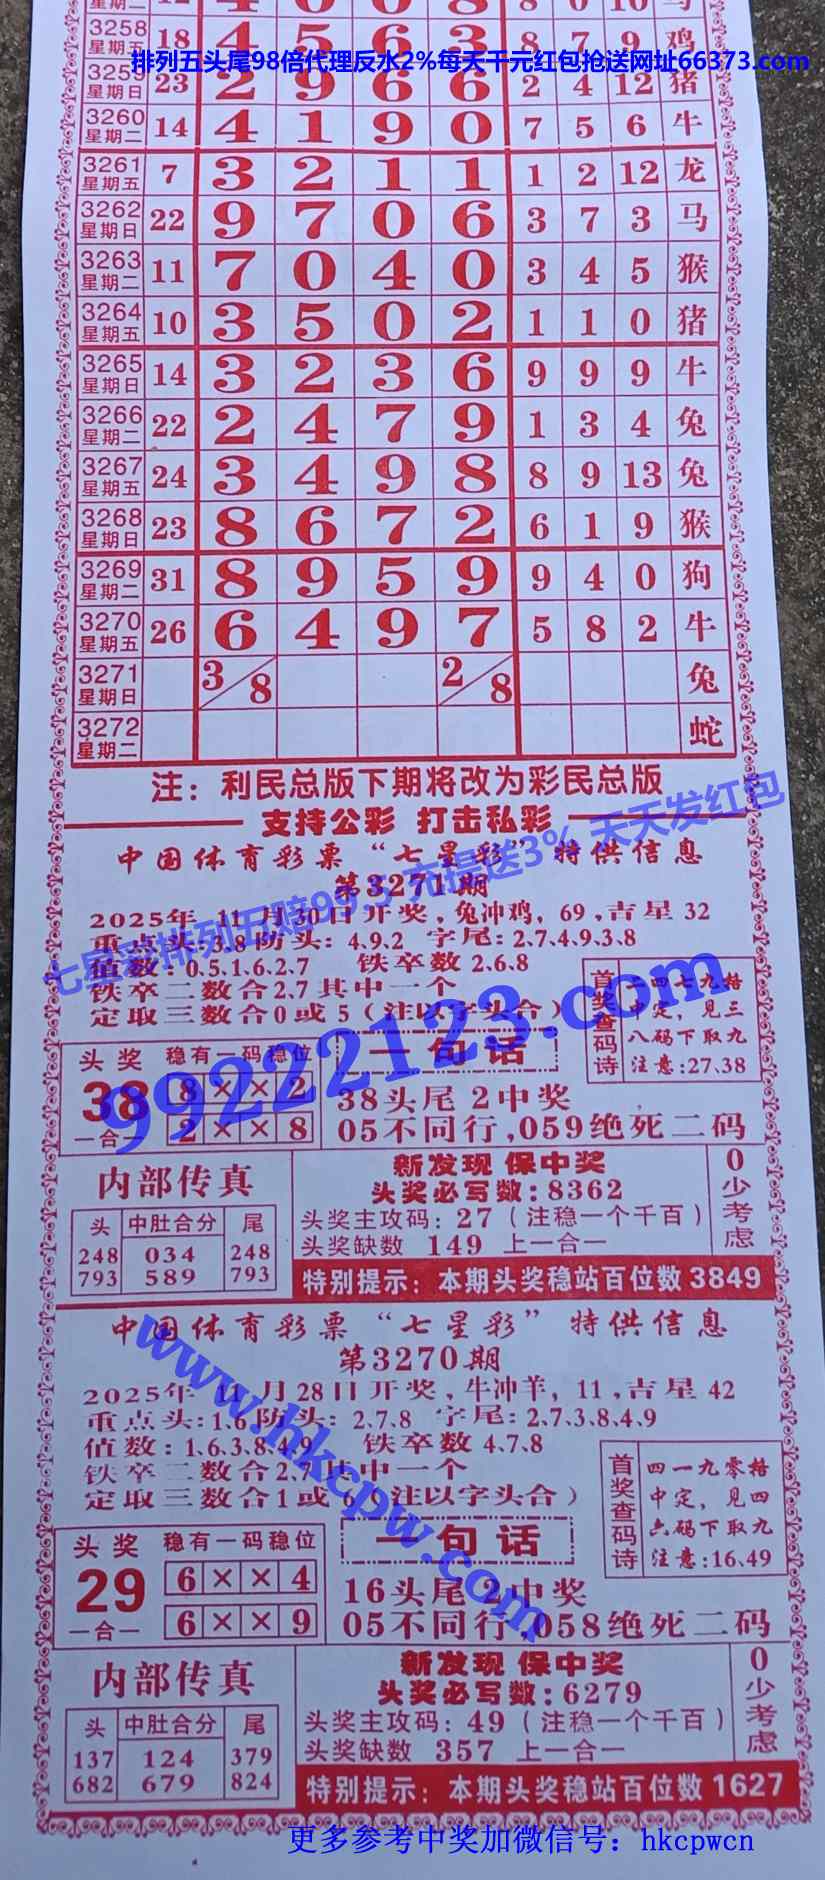 星期二 0 8 8 0 10 马
3258 星期五 18 4 5 6 3 8 7 9 鸡
排列五头尾98倍代理反水2%每天千元红包抢送网址66373.com
3259 星期日 23 2 9 6 6 2 4 12 猪
3260 星期二 14 4 1 9 0 7 5 6 牛
3261 星期五 7 3 2 1 1 1 2 12 龙
3262 星期日 22 9 7 0 6 3 7 3 马
3263 星期二 11 7 0 4 0 3 4 5 猴
3264 星期五 10 3 5 0 2 1 1 0 猪
3265 星期日 14 3 2 3 6 9 9 9 牛
3266 星期二 22 2 4 7 9 1 3 4 兔
3267 星期五 24 3 4 9 8 8 9 13 兔
3268 星期日 23 8 6 7 2 6 1 9 猴
3269 星期二 31 8 9 5 9 9 4 0 狗
3270 星期五 26 6 4 9 7 5 8 2 牛
3271 星期日 3/8 2/8 兔
3272 星期二 蛇
注：利民总版下期将改为彩民总版
支持公彩 打击私彩
中国体育彩票“七星彩”特供信息
第3271期
七星彩排列五赔99.5 充提送3% 天天发红包
2025年 11月30日开奖，兔冲鸡，69，吉星 32
重点头:3.8防头: 4.9.2 字尾: 2.7.4.9.3.8
值数: 0.5.1.6.2.7 铁卒数 2.6.8
铁卒二数合2.7其中一个
定取三数合0或 5（注以字头合）
首奖查码诗
二四七九挌
中定，见三
八码下取九
注意:27.38
99222123.com
头奖 38 一合一
稳有一码稳位
8 × × 2
2 × × 8
一句话
38头尾 2中奖
05不同行,059绝死二码
内部传真
头 中肚合分 尾
248 034 248
793 589 793
新发现 保中奖
头奖必写数: 8362
头奖主攻码: 27（注稳一个千百）
头奖缺数 149 上一合一
0少考虑
特别提示: 本期头奖稳站百位数 3849
中国体育彩票“七星彩”特供信息
第3270期
www.hkcpw.com
2025年 11月28日开奖，牛冲羊，11，吉星 42
重点头:1.6防头: 2.7.8 字尾: 2.7.3.8.4.9
值数: 1.6.3.8.4.9 铁卒数 4.7.8
铁卒二数合2.7其中一个
定取三数合1或 6（注以字头合）
首奖查码诗
四一九零挌
中定，见四
六码下取九
注意:16.49
头奖 29 一合一
稳有一码稳位
6 × × 4
6 × × 9
一句话
16头尾 2中奖
05不同行,058绝死二码
内部传真
头 中肚合分 尾
137 124 379
682 679 824
新发现 保中奖
头奖必写数: 6279
头奖主攻码: 49（注稳一个千百）
头奖缺数 357 上一合一
0少考虑
特别提示: 本期头奖稳站百位数 1627
更多参考中奖加微信号：hkcpwcn